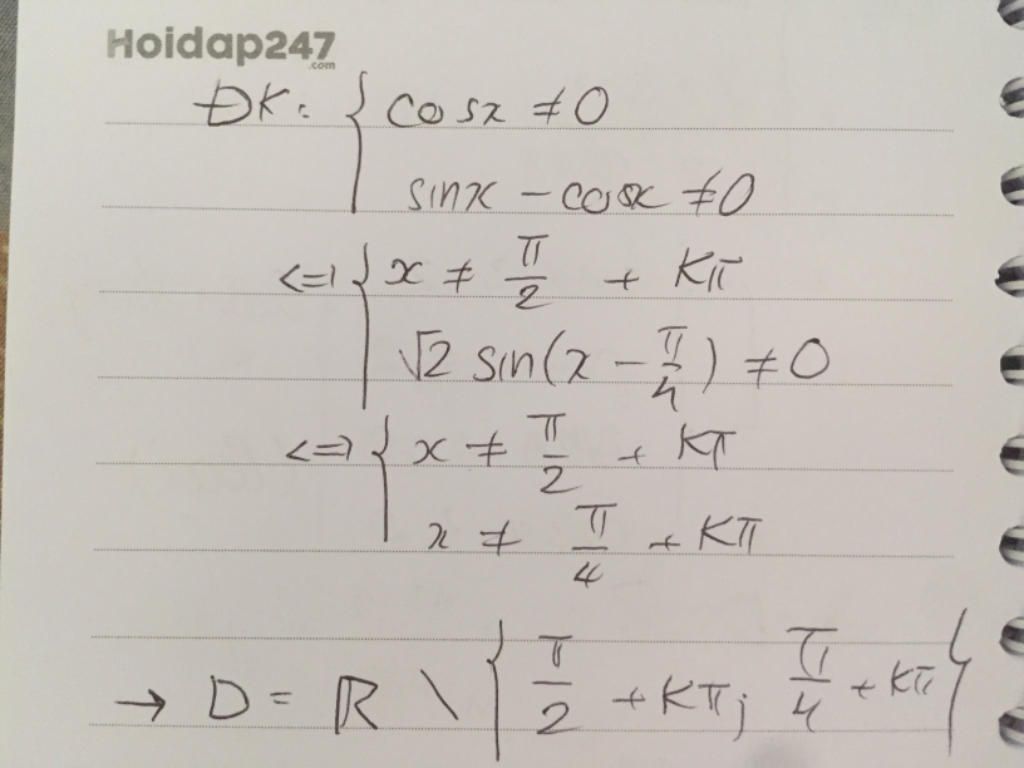 Hoidap247
.com
ĐK: { cosx ≠ 0
sinx - cosx ≠ 0
<=> { x ≠ π/2 + Kπ
√2 sin(x - π/4) ≠ 0
<=> { x ≠ π/2 + Kπ
x ≠ π/4 + Kπ
→ D = ℝ \ { π/2 + Kπ; π/4 + Kπ }